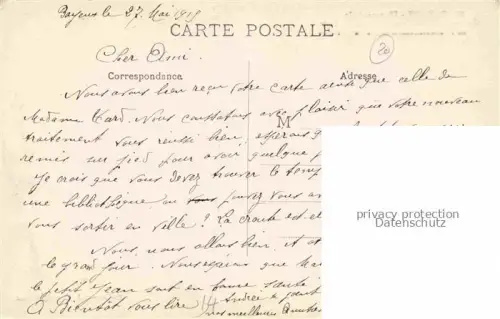 le 27 Mai 1915
CARTE POSTALE
20
Cher Ami.
Correspondance
Adresse
Nous avons bien reçu votre carte ainsi que celle de
Madame Card. Nous constatons avec plaisir que votre nouveau
M
traitement vous réussi bien, espérons
remis sur pied pour avoir quelque
Je crois que vous devez trouver le temps
une bibliothèque ou pouvez vous
vous sortir en ville? La croute est
Nous, nous allons bien, et
le grand jour. que
le petit Jean sont en bonne santé
A Bientôt vous lire
meilleures
privacy protection
Datenschutz